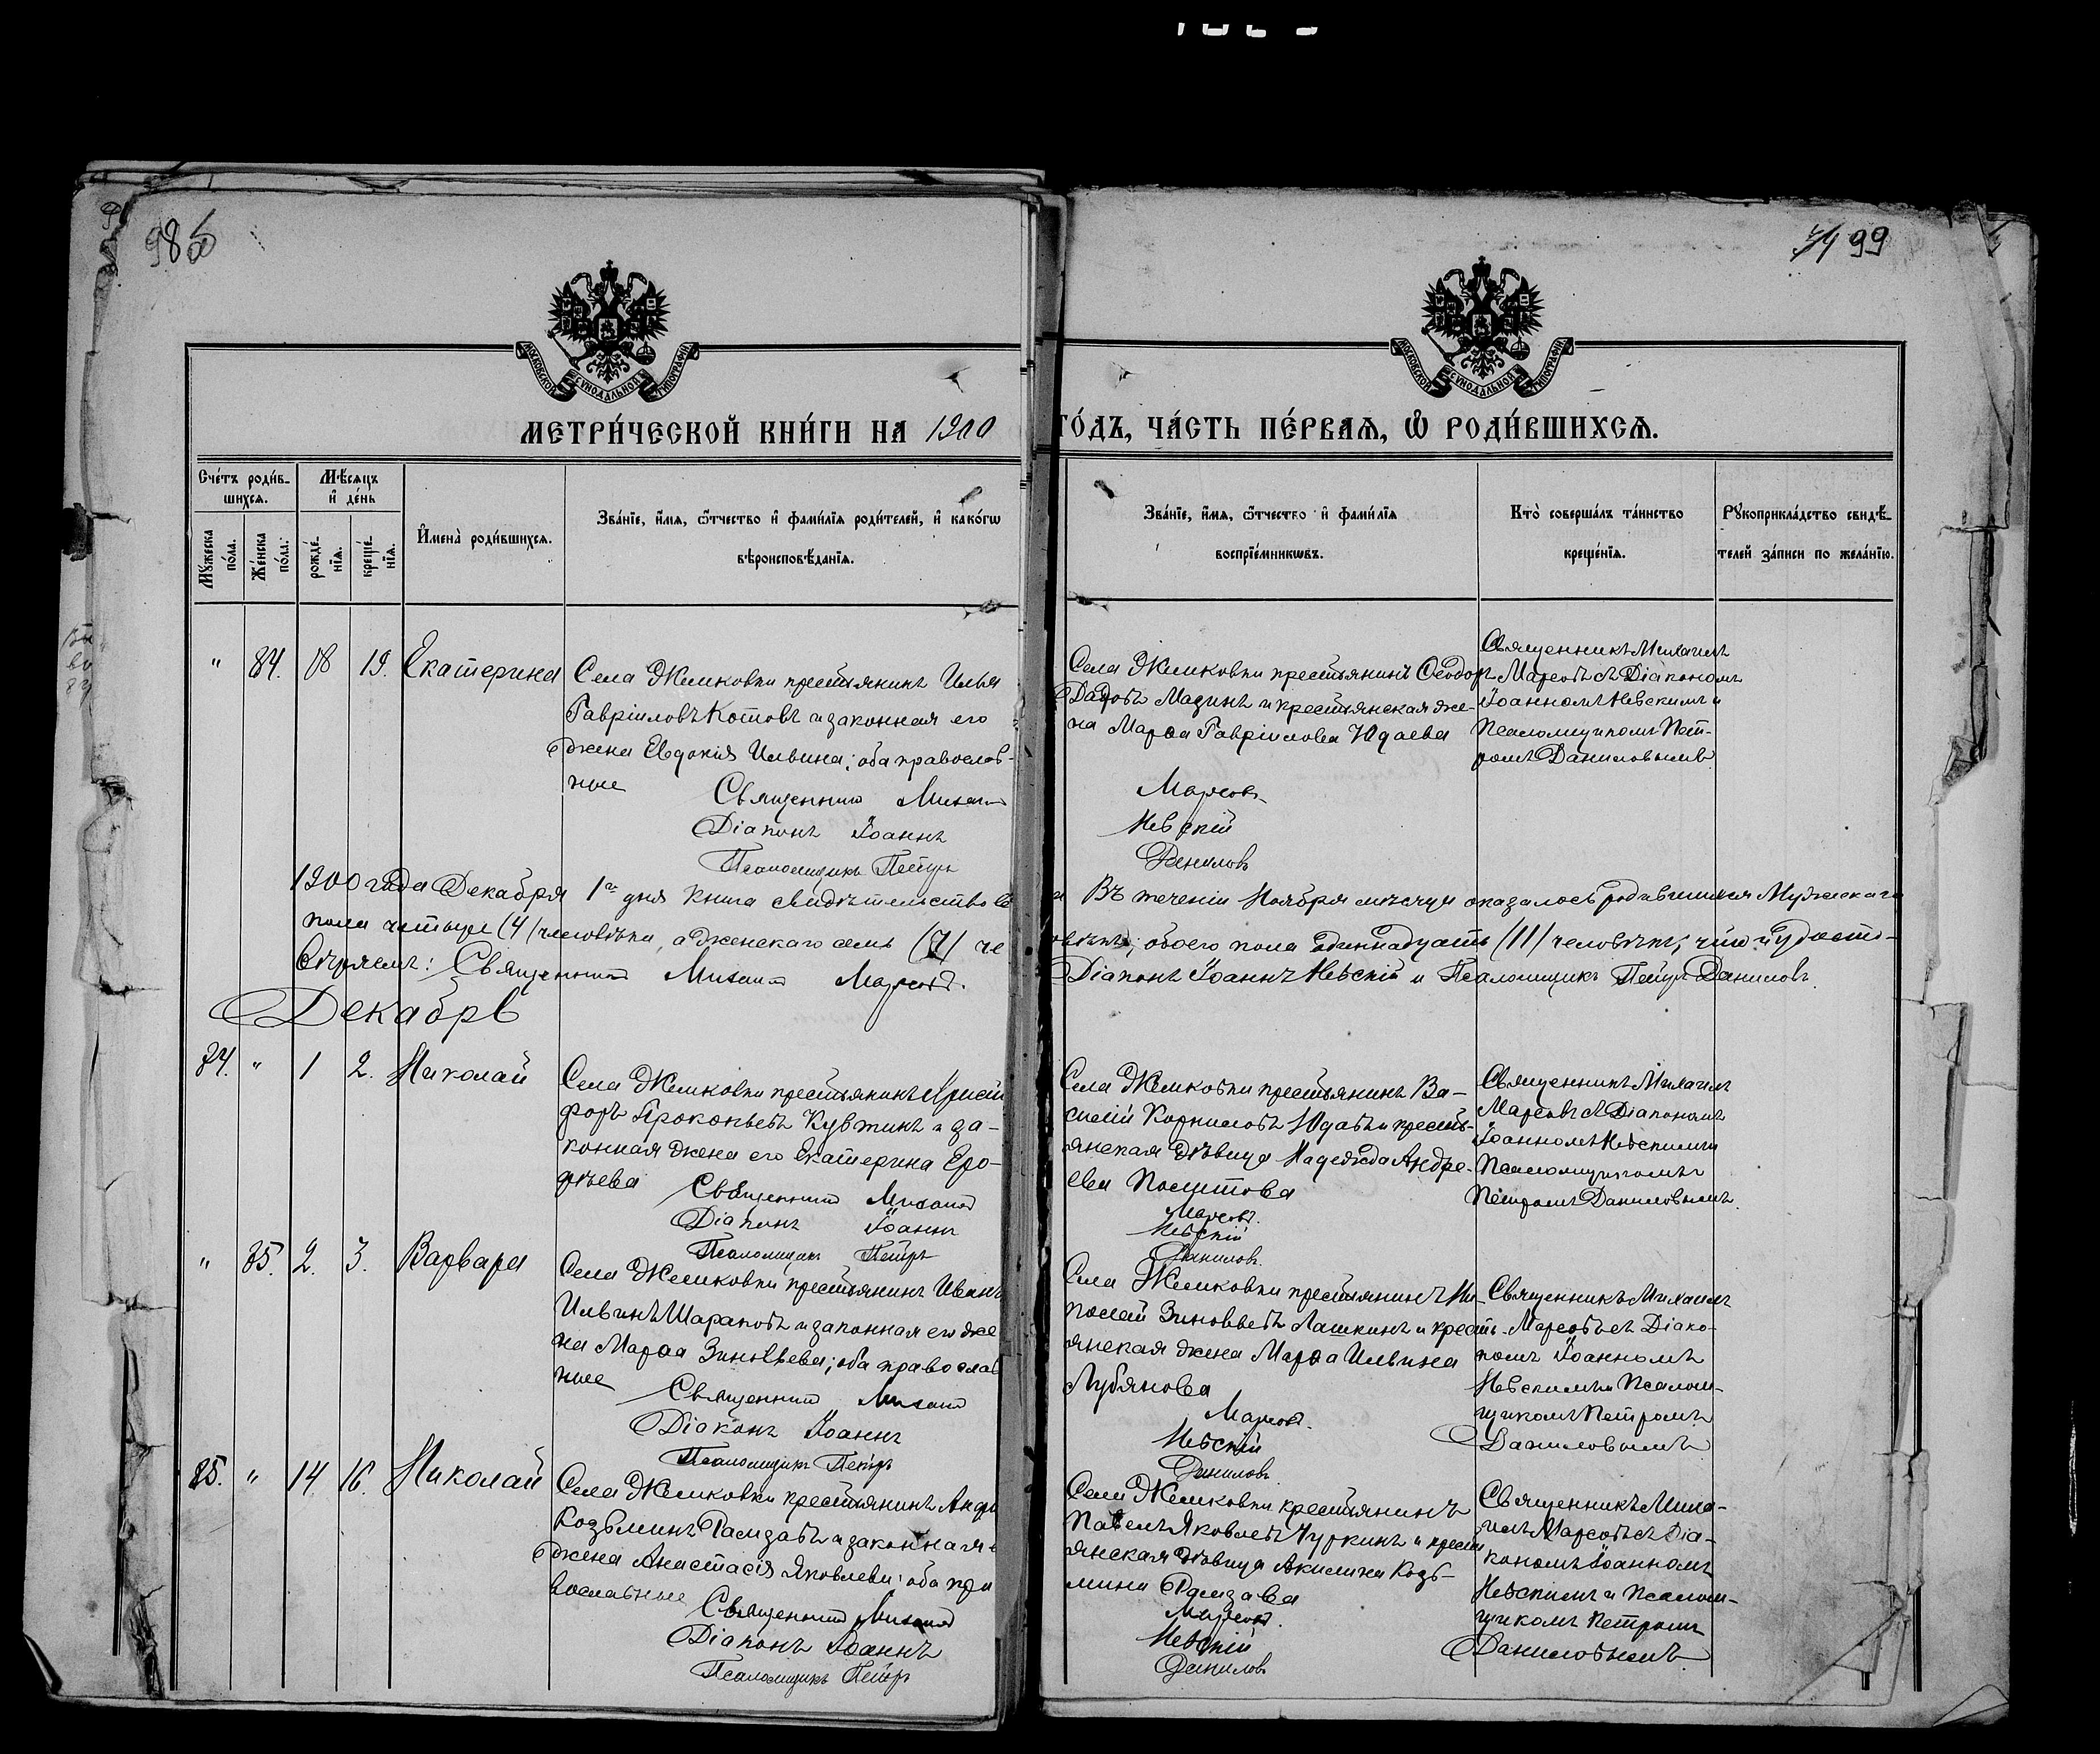 98об
99
МОСКОВСКОЙ СѴНОДАЛЬНОЙ ТИПОГРАФІИ
МОСКОВСКОЙ СѴНОДАЛЬНОЙ ТИПОГРАФІИ
МЕТРИ́ЧЕСКОЙ КНИ́ГИ НА 1900
ГО́ДЪ, ЧА́СТЬ ПЕ́РВАѦ, Ѡ҆ РОДИ́ВШИХСѦ.
Сче́тъ роди́в-
шихсѧ.
Мѣ́сѧцъ
и҆ де́нь
Мꙋ́жеска
по́ла.
Же́нска
по́ла.
рожде́-
нїѧ.
креще́-
нїѧ.
И҆мена̀ роди́вшихсѧ.
Зва́нїе, и҆́мѧ, ѻ҆́тчество и҆ фами́лїѧ роди́телей, и҆ како́гѡ
вѣроисповѣ́данїѧ.
Зва́нїе, и҆́мѧ, ѻ҆́тчество и҆ фами́лїѧ
воспрїе́мникѡвъ.
Кто̀ соверша́лъ та́инство
креще́нїѧ.
Рꙋкоприкла́дство свидѣ́-
телей за́писи по жела́нїю.
" 84. 18 19. Екатерина
Села Жемковки крестьянинъ Илья
Гавріиловъ Котовъ и законная его
жена Евдокія Ильина; оба православ-
ные
Священникъ Михаилъ
Діаконъ Іоаннъ
Псаломщикъ Петръ
Села Жемковки крестьянинъ Ѳеодоръ
Мазинъ и крестьянская же-
на Марѳа Гавріилова Юдаева
Марсовъ
Невскій
Данилов
Священникъ Михаилъ
Марсовъ съ Діакономъ
Іоанномъ Невскимъ и
Псаломщикомъ Пет-
ромъ Даниловымъ
1900 года Декабря 1го дня книга свидѣтельствова
на Въ теченіи Ноября месяца оказалось родившихся Мужскаго
пола четыре (4) человѣка, а женскаго семь (7) че
ловѣкъ; обоего пола одиннадцать (11) человѣкъ; что и удосто-
вѣряемъ: Священникъ Михаилъ Марсовъ.
Діаконъ Іоаннъ Невскій и Псаломщикъ Петръ Данилов
Декабрь
84. " 1 2. Николай
Села Жемковки крестьянинъ Христо
форъ Прокопьевъ Кувжинъ и за-
конная жена его Екатерина Еро-
фѣева
Священникъ Михаилъ
Діаконъ Іоаннъ
Псаломщикъ Петръ
Села Жемковки крестьянинъ Ва-
силій Корниловъ Юдаевъ и кресть-
янская дѣвица Надежда Андре-
ева
Марсовъ.
Невскій
Данилов.
Священникъ Михаилъ
Марсовъ съ Діакономъ
Іоанномъ Невскимъ и
Псаломщикомъ
Петромъ Даниловымъ.
" 85. 2. 3. Варвара
Села Жемковки крестьянинъ Иванъ
Ильинъ Шараповъ и законная его же
на Марѳа Зиновьева; оба православ
ные
Священникъ Михаилъ
Діаконъ Іоаннъ
Псаломщикъ Петръ
Села Жемковки крестьянинъ Ни-
колай Зиновьевъ Лашкинъ и кресть-
янская жена Марѳа Ильина
Лубянова
Марсовъ.
Невскій
Данилов.
Священникъ Михаилъ
Марсовъ съ Діако-
номъ Іоанномъ
Невскимъ и Псалом-
щикомъ Петромъ
Даниловымъ
85. " 14 16. Николай
Села Жемковки крестьянинъ Андр
Козьминъ Рамзаевъ и законная е
жена Анастасія Яковлева; оба пра
вославные
Священникъ Михаилъ
Діаконъ Іоаннъ
Псаломщикъ Петръ
Села Жемковки крестьянинъ
Павелъ Яковлевъ Чуркинъ и кресть
янская дѣвица Акилина Козь-
мина
Марсовъ.
Невскій
Данилов
Священникъ Миха-
илъ Марсовъ съ Діа-
кономъ Іоанномъ
Невскимъ и Псалом-
щикомъ Петромъ
Даниловымъ